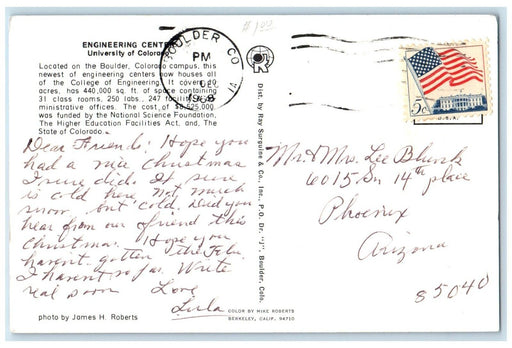 $1.00
ENGINEERING CENT
University of Colorad
Located on the Boulder, Colorado campus, this
newest of engineering centers now houses all
of the College of Engineering. It covers 20
acres, has 440,000 sq. ft. of space containing
31 class rooms, 250 labs., 247 faculty & ad-
ministrative offices. The cost of $8,525,000
was funded by the National Science Foundation,
The Higher Education Facilities Act, and, The
State of Colorado.
BOULDER CO
PM
1968
1A
U.S.A.
Dear Friends: Hope you
had a nice Christmas
I sure did. It sure
is cold here. Not much
snow, but cold. Did you
hear from our friend this
Christmas. Hope you
haven't gotten the Flu.
I haven't so far. Write
real soon Love
Lula
Mr. & Mrs. Lee Blunk
6015 Sn 14th place
Phoenix
Arizona
85040
Dist. by Ray Surguine & Co., Inc., P.O. Dr. "J", Boulder, Colo.
COLOR BY MIKE ROBERTS
BERKELEY, CALIF. 94710
photo by James H. Roberts